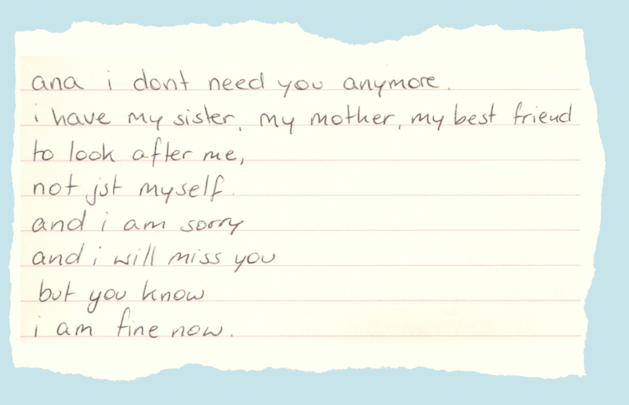 ana i dont need you anymore.
i have my sister, my mother, my best friend
to look after me,
not jst myself.
and i am sorry
and i will miss you
but you know
i am fine now.